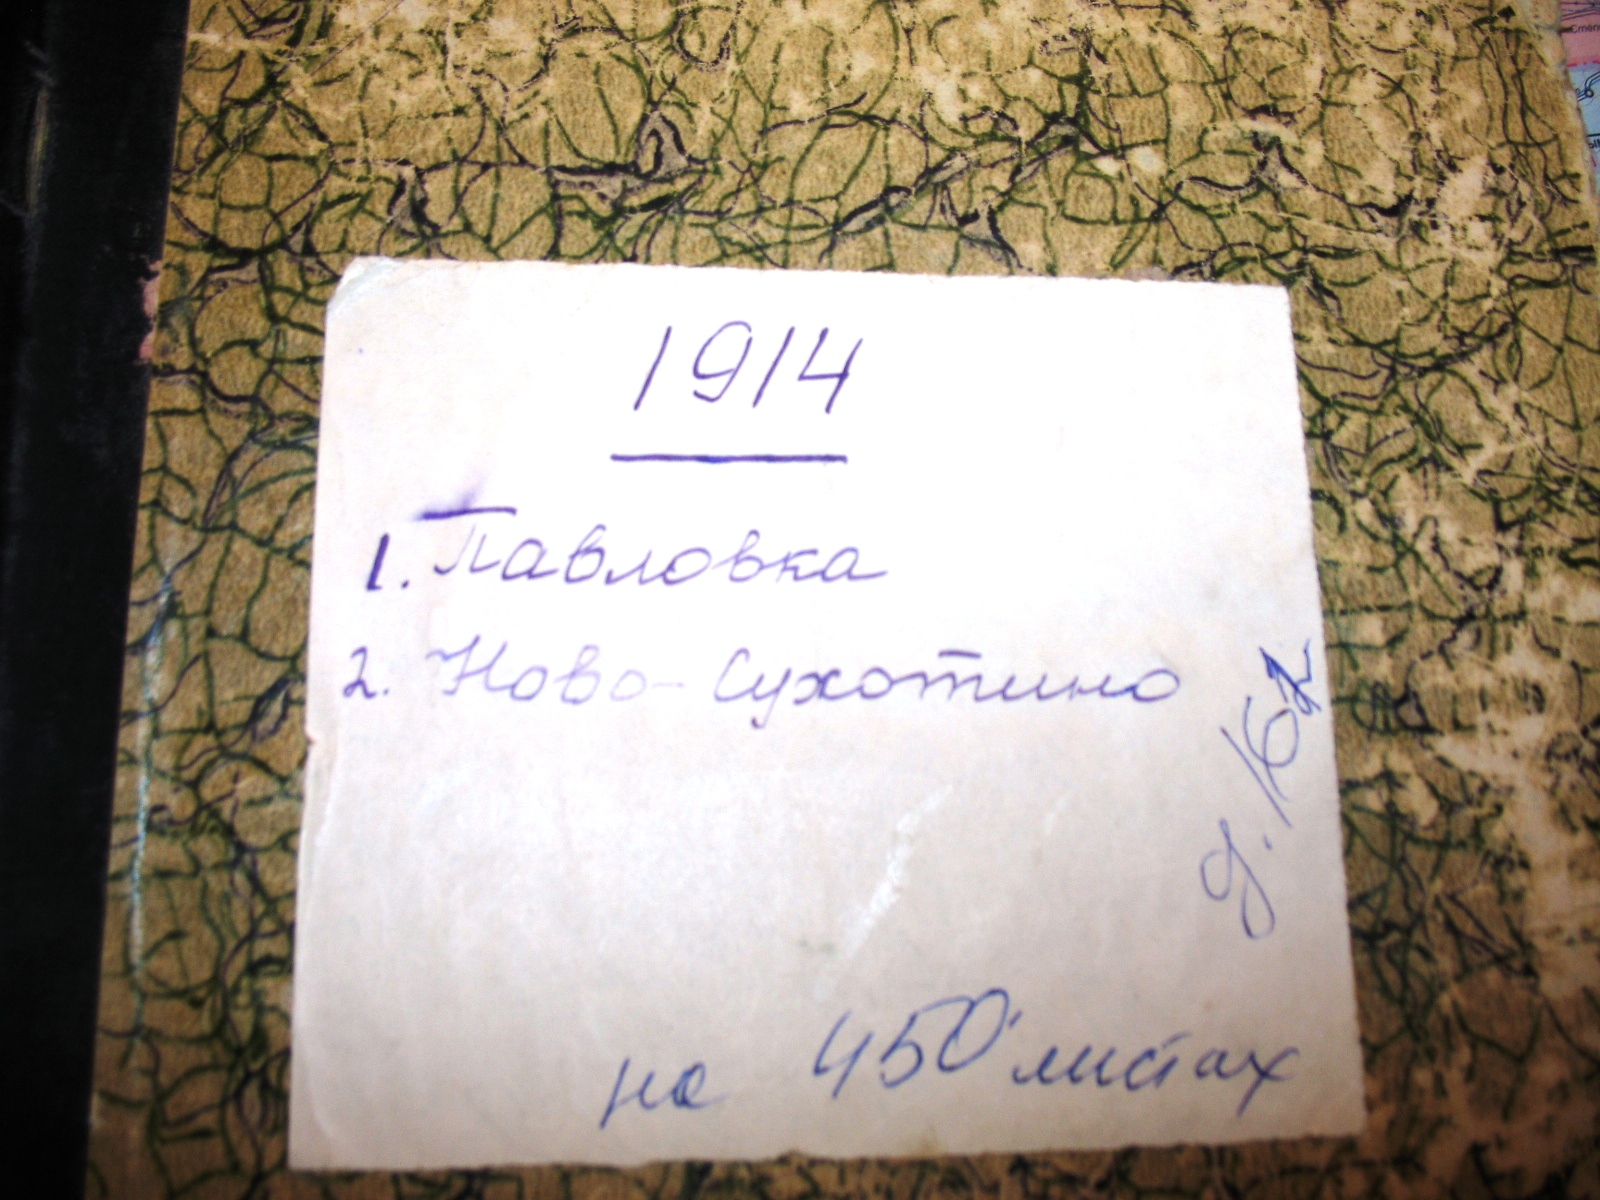 1914
1. Павловка
2. Ново-Сухотино
д. 162
на 450 листах